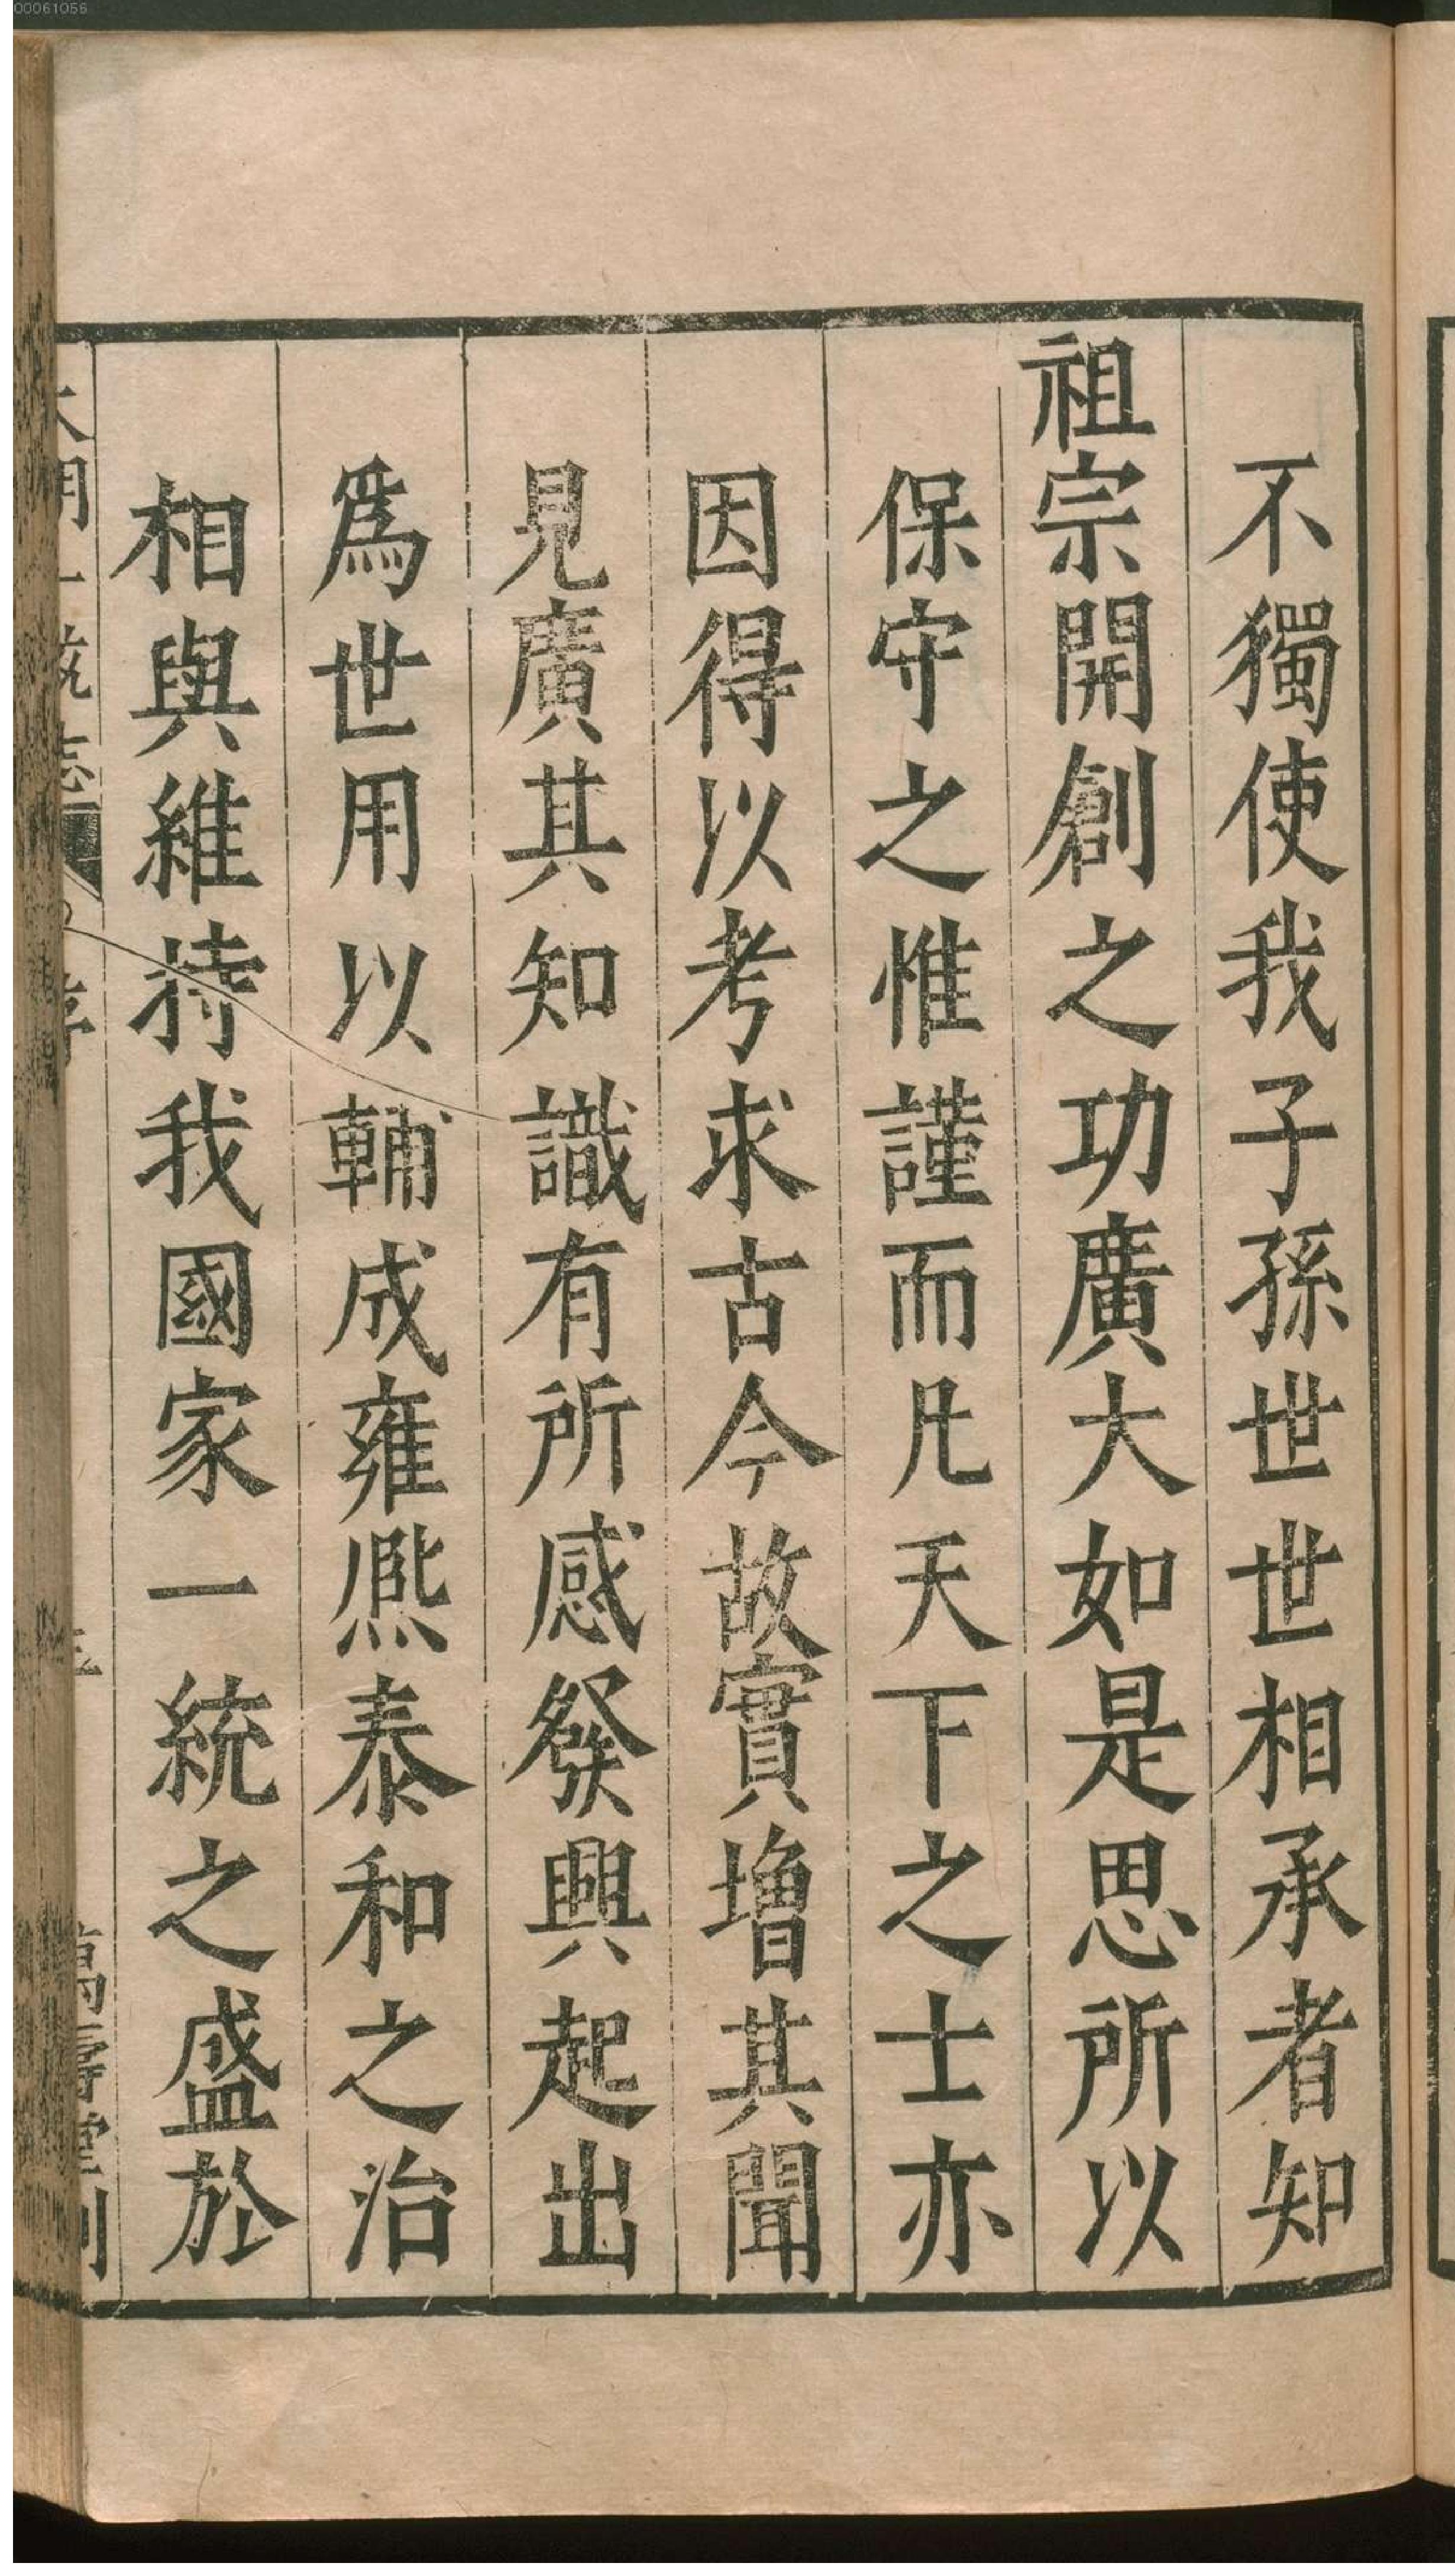 不獨使我子孫世世相承者知
祖宗開創之功廣大如是思所以
保守之惟謹而凡天下之士亦
因得以考求古今故實增其聞
見廣其知識有所感發興起出
爲世用以輔成雍熈泰和之治
相與維持我國家一統之盛於
大明一統志
序
萬壽堂刊
00061056